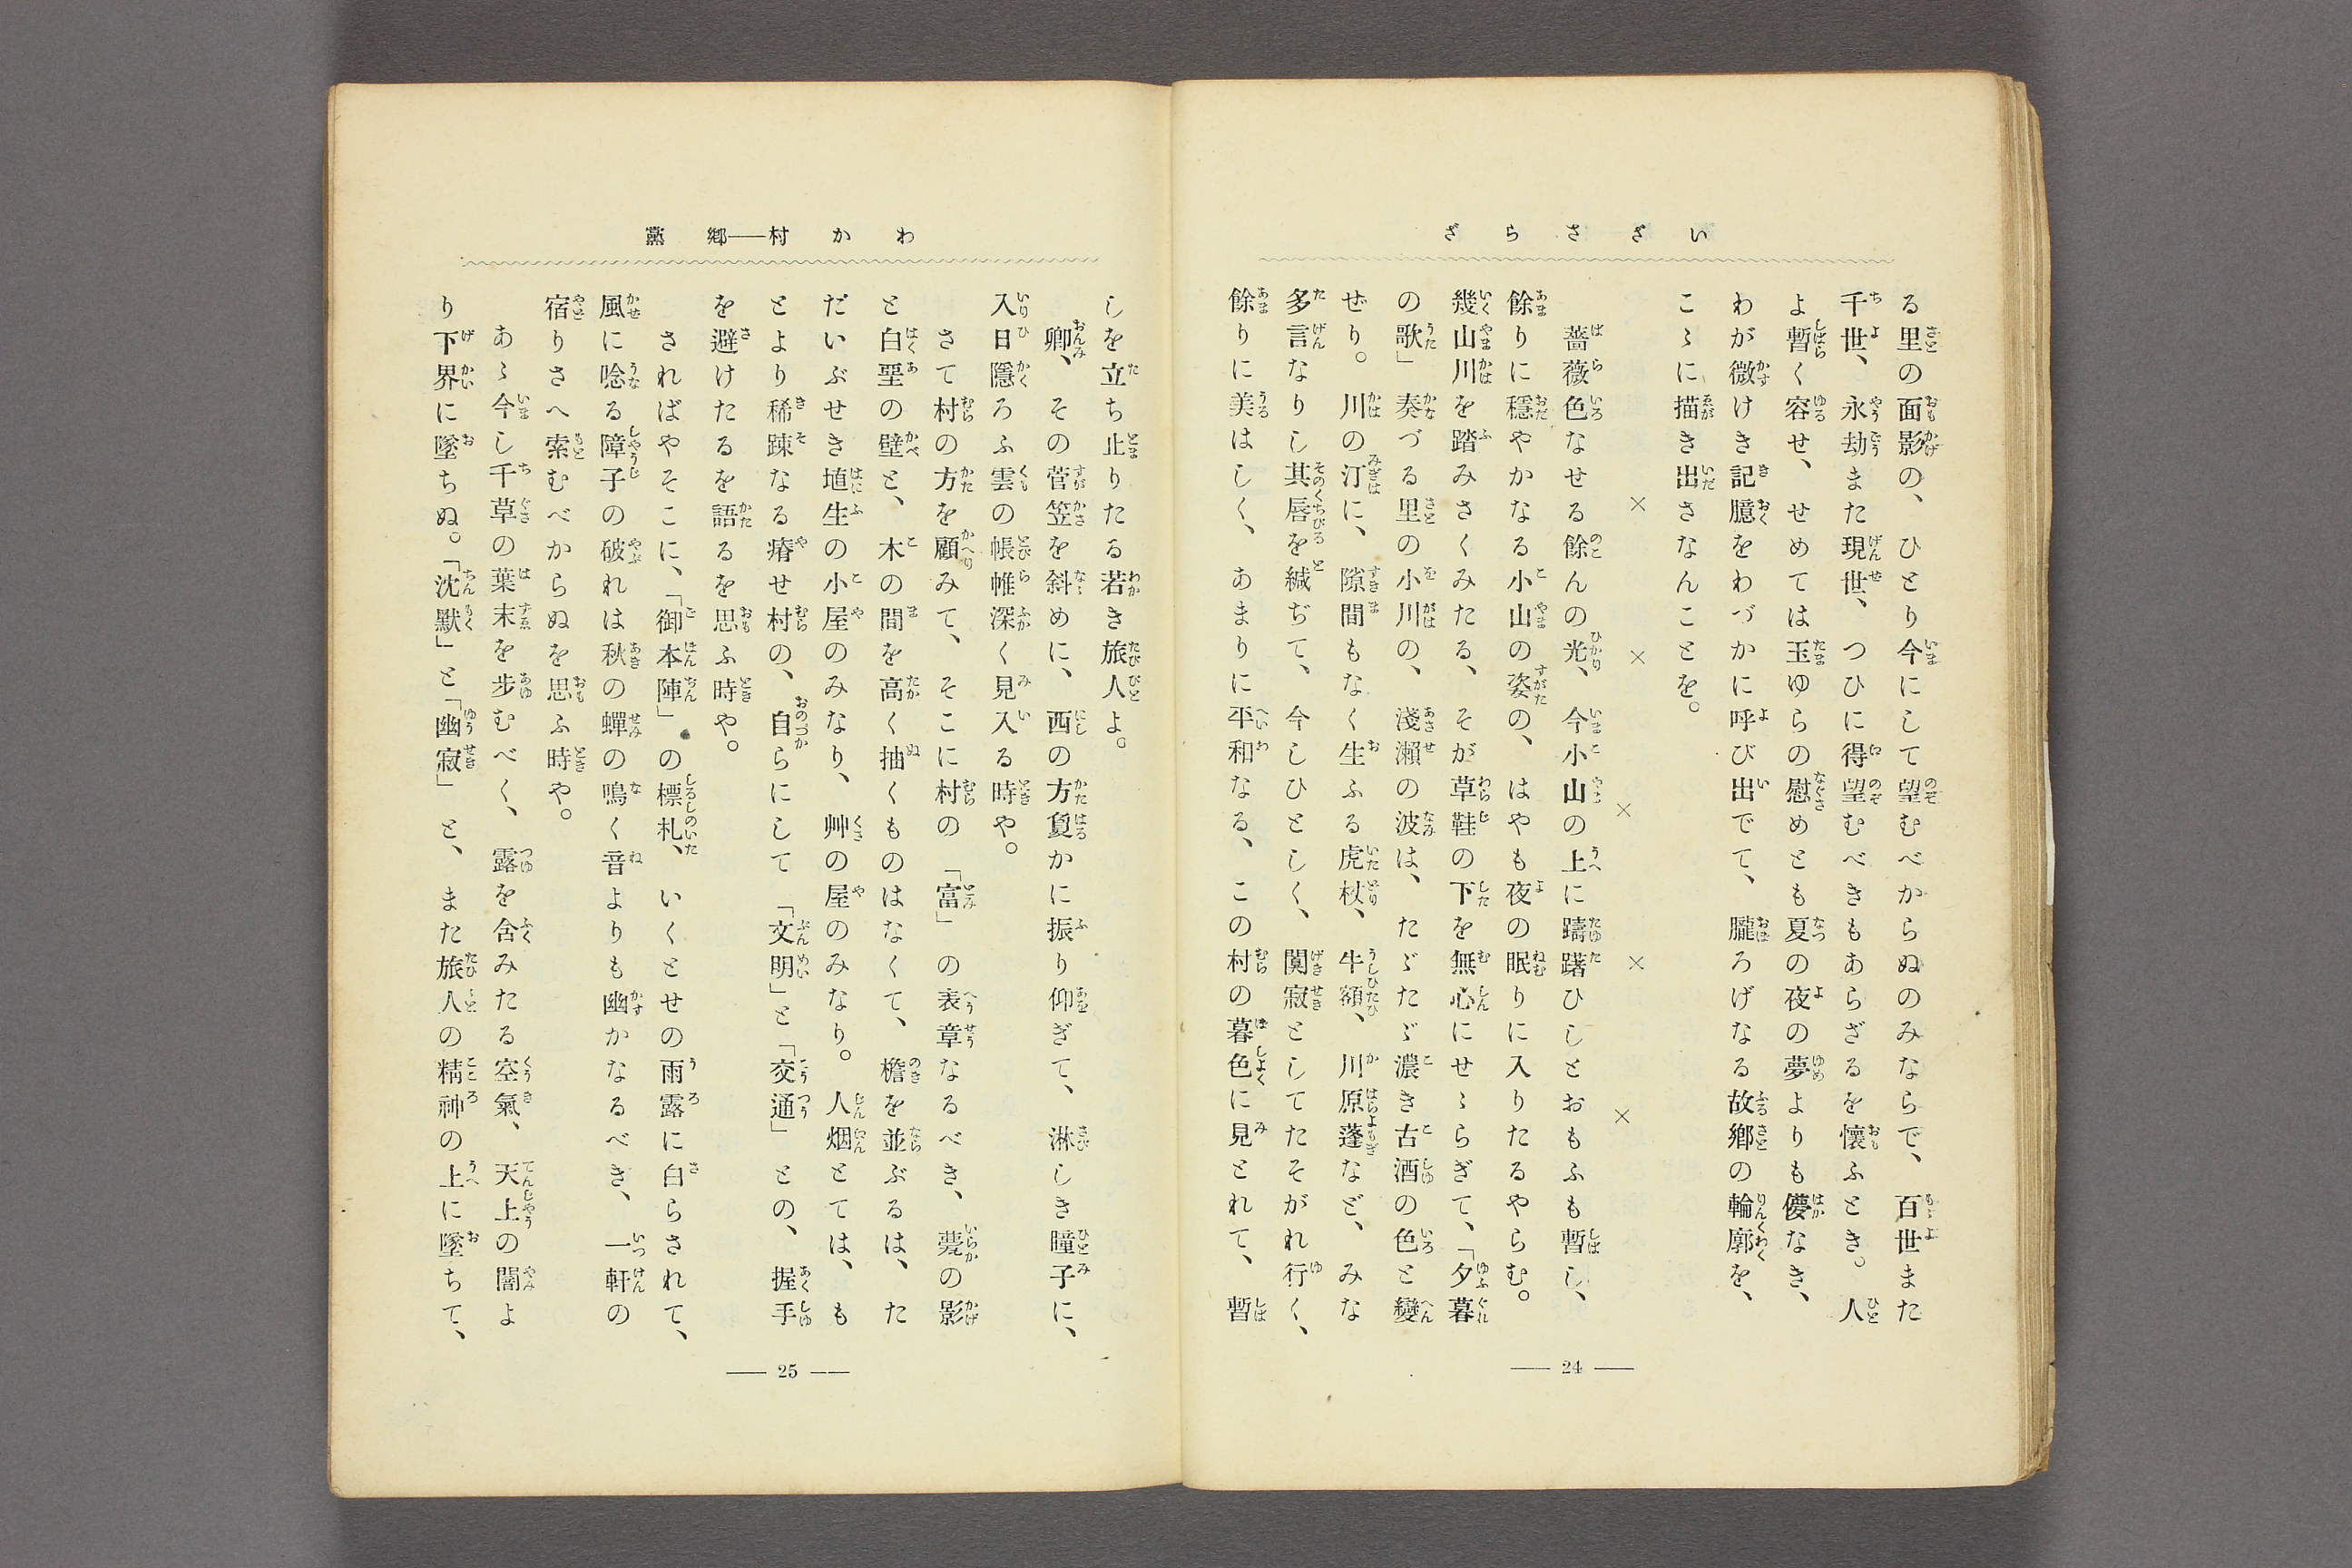 いさゞらさざ
る里の面影の、ひとり今にして望むべからぬのみならで、百世また
千世、永劫また現世、つひに得望むべきもあらざるを懷ふとき。人
よ暫く容せ、せめては玉ゆらの慰めとも夏の夜の夢よりも儚なき、
わが微けき記臆をわづかに呼び出でて、朧ろげなる故鄕の輪廓を、
こゝに描き出さなんことを。
× × × × ×
薔薇色なせる餘んの光、今小山の上に躊躇ひしとおもふも暫し、
餘りに穩やかなる小山の姿の、はやも夜の眠りに入りたるやらむ。
幾山川を踏みさくみたる、そが草鞋の下を無心にせゝらぎて、「夕暮
の歌」奏づる里の小川の、淺瀨の波は、たゞたゞ濃き古酒の色と變
ぜり。川の汀に、隙間もなく生ふる虎杖、牛額、川原蓬など、みな
多言なりし其唇を緘ぢて、今しひとしく、闃寂としてたそがれ行く、
餘りに美はしく、あまりに平和なる、この村の暮色に見とれて、暫
— 24 —
わか村——鄕黨
しを立ち止りたる若き旅人よ。
卿、その菅笠を斜めに、西の方敻かに振り仰ぎて、淋しき瞳子に、
入日隱ろふ雲の帳帷深く見入る時や。
さて村の方を顧みて、そこに村の「富」の表章なるべき、甍の影
と白堊の壁と、木の間を高く抽くものはなくて、檐を並ぶるは、た
だいぶせき埴生の小屋のみなり、艸の屋のみなり。人烟とては、も
とより稀踈なる瘠せ村の、自らにして「文明」と「交通」との、握手
を避けたるを語るを思ふ時や。
さればやそこに、「御本陣」の標札、いくとせの雨露に白らされて、
風に唸る障子の破れは秋の蟬の鳴く音よりも幽かなるべき、一軒の
宿りさへ索むべからぬを思ふ時や。
あゝ今し千草の葉末を步むべく、露を含みたる空氣、天上の闇よ
り下界に墜ちぬ。「沈默」と「幽寂」と、また旅人の精神の上に墜ちて、
— 25 —